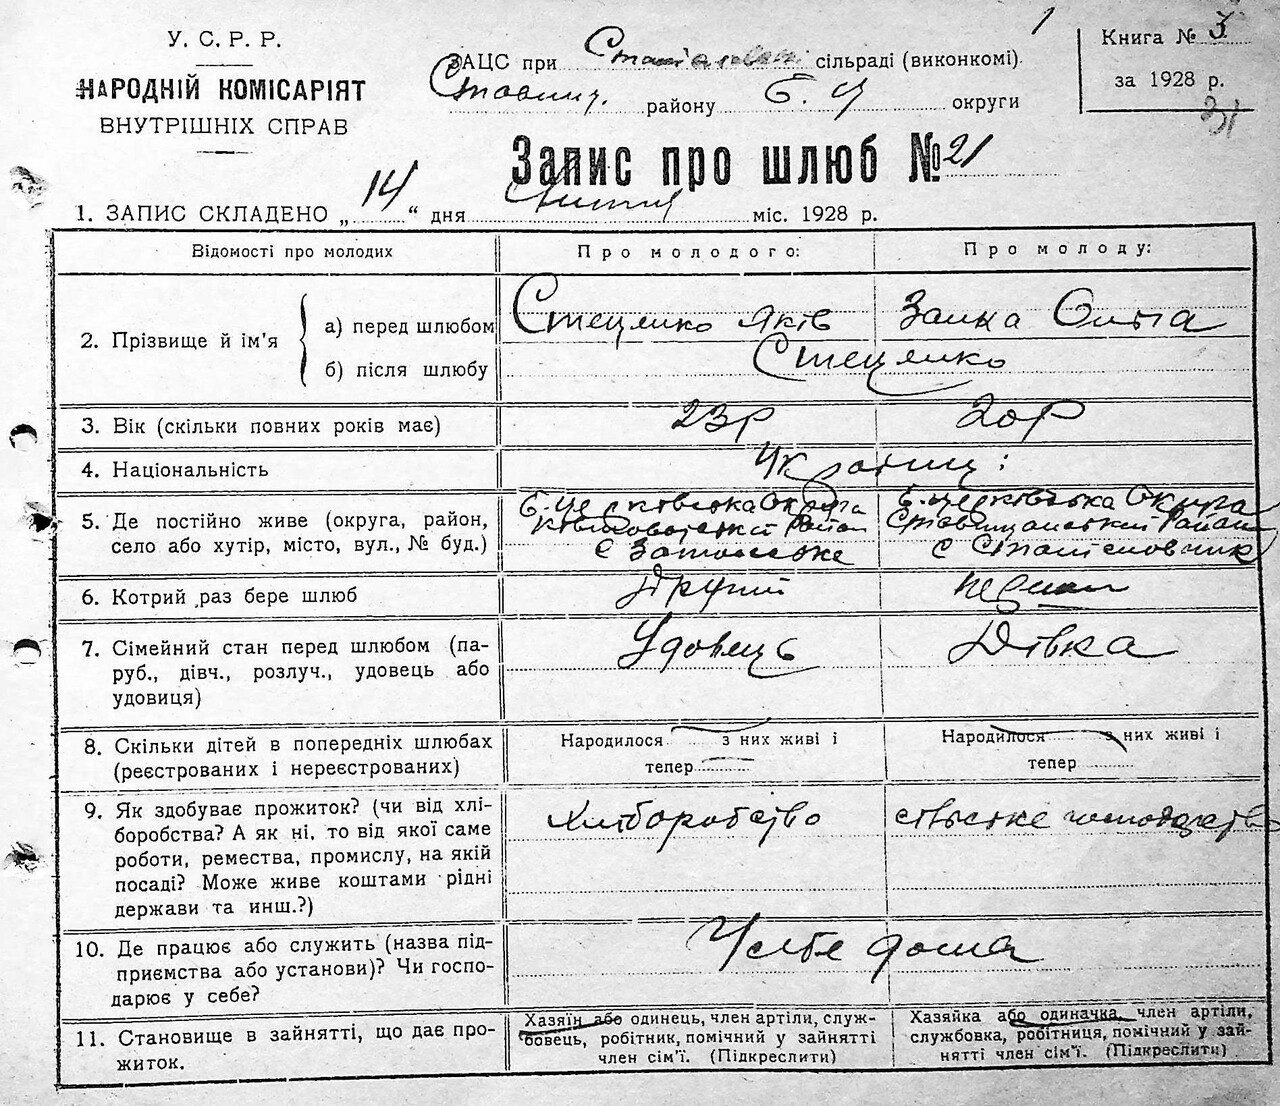 У. С. Р. Р.
НАРОДНІЙ КОМІСАРІЯТ
ВНУТРІШНІХ СПРАВ
ЗАЦС при сільраді (виконкомі)
Ставищ. району Б. Ц округи
Книга № 3
за 1928 р.
31
Запис про шлюб № 21
1. ЗАПИС СКЛАДЕНО „ 14 “ дня Липня міс. 1928 р.
Відомості про молодих
Про молодого:
Про молоду:
2. Прізвище й ім'я
а) перед шлюбом
Стеценко Яків
Заика Ольга
б) після шлюбу
Стеценко
3. Вік (скільки повних років має)
23р
20р
4. Національність
Україн;
5. Де постійно живе (округа, район,
село або хутір, місто, вул., № буд.)
Б-Церківська Округа
Район
с
Б-Церківська Округа
Ставищанський Район
с Станіславчик
6. Котрий раз бере шлюб
Другий
перший
7. Сімейний стан перед шлюбом (па-
руб., дівч., розлуч., удовець або
удовиця)
Удовець
Дівка
8. Скільки дітей в попередніх шлюбах
(реєстрованих і нереєстрованих)
Народилося з них живі і
тепер
Народилося з них живі і
тепер
9. Як здобуває прожиток? (чи від хлі-
боробства? А як ні, то від якої саме
роботи, ремества, промислу, на якій
посаді? Може живе коштами рідні
держави та инш.?)
Хліборобство
сільське господарство
10. Де працює або служить (назва під-
приємства або установи)? Чи госпо-
дарює у себе?
У себе дома
11. Становище в зайнятті, що дає про-
житок.
Хазяїн або одинець, член артіли, служ-
бовець, робітник, помічний у зайнятті
член сім'ї. (Підкреслити)
Хазяйка або одиначка, член артіли,
службовка, робітниця, помічний у зай-
нятті член сім'ї. (Підкреслити)